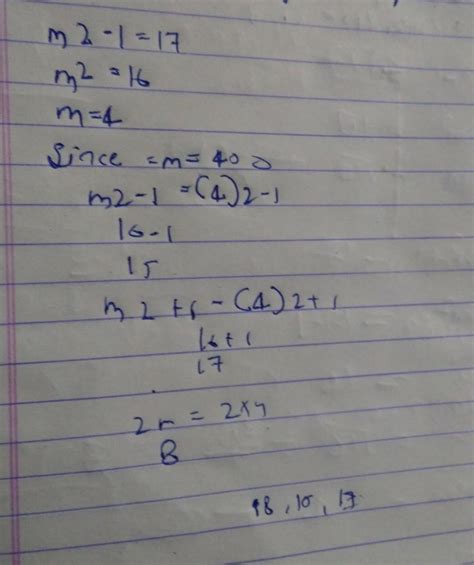 m2-1=17
m2=16
m=4
Since =m=40
m2-1=(4)2-1
16-1
15
m2+1-(4)2+1
16+1
17
2m=2×4
8
8,15,17